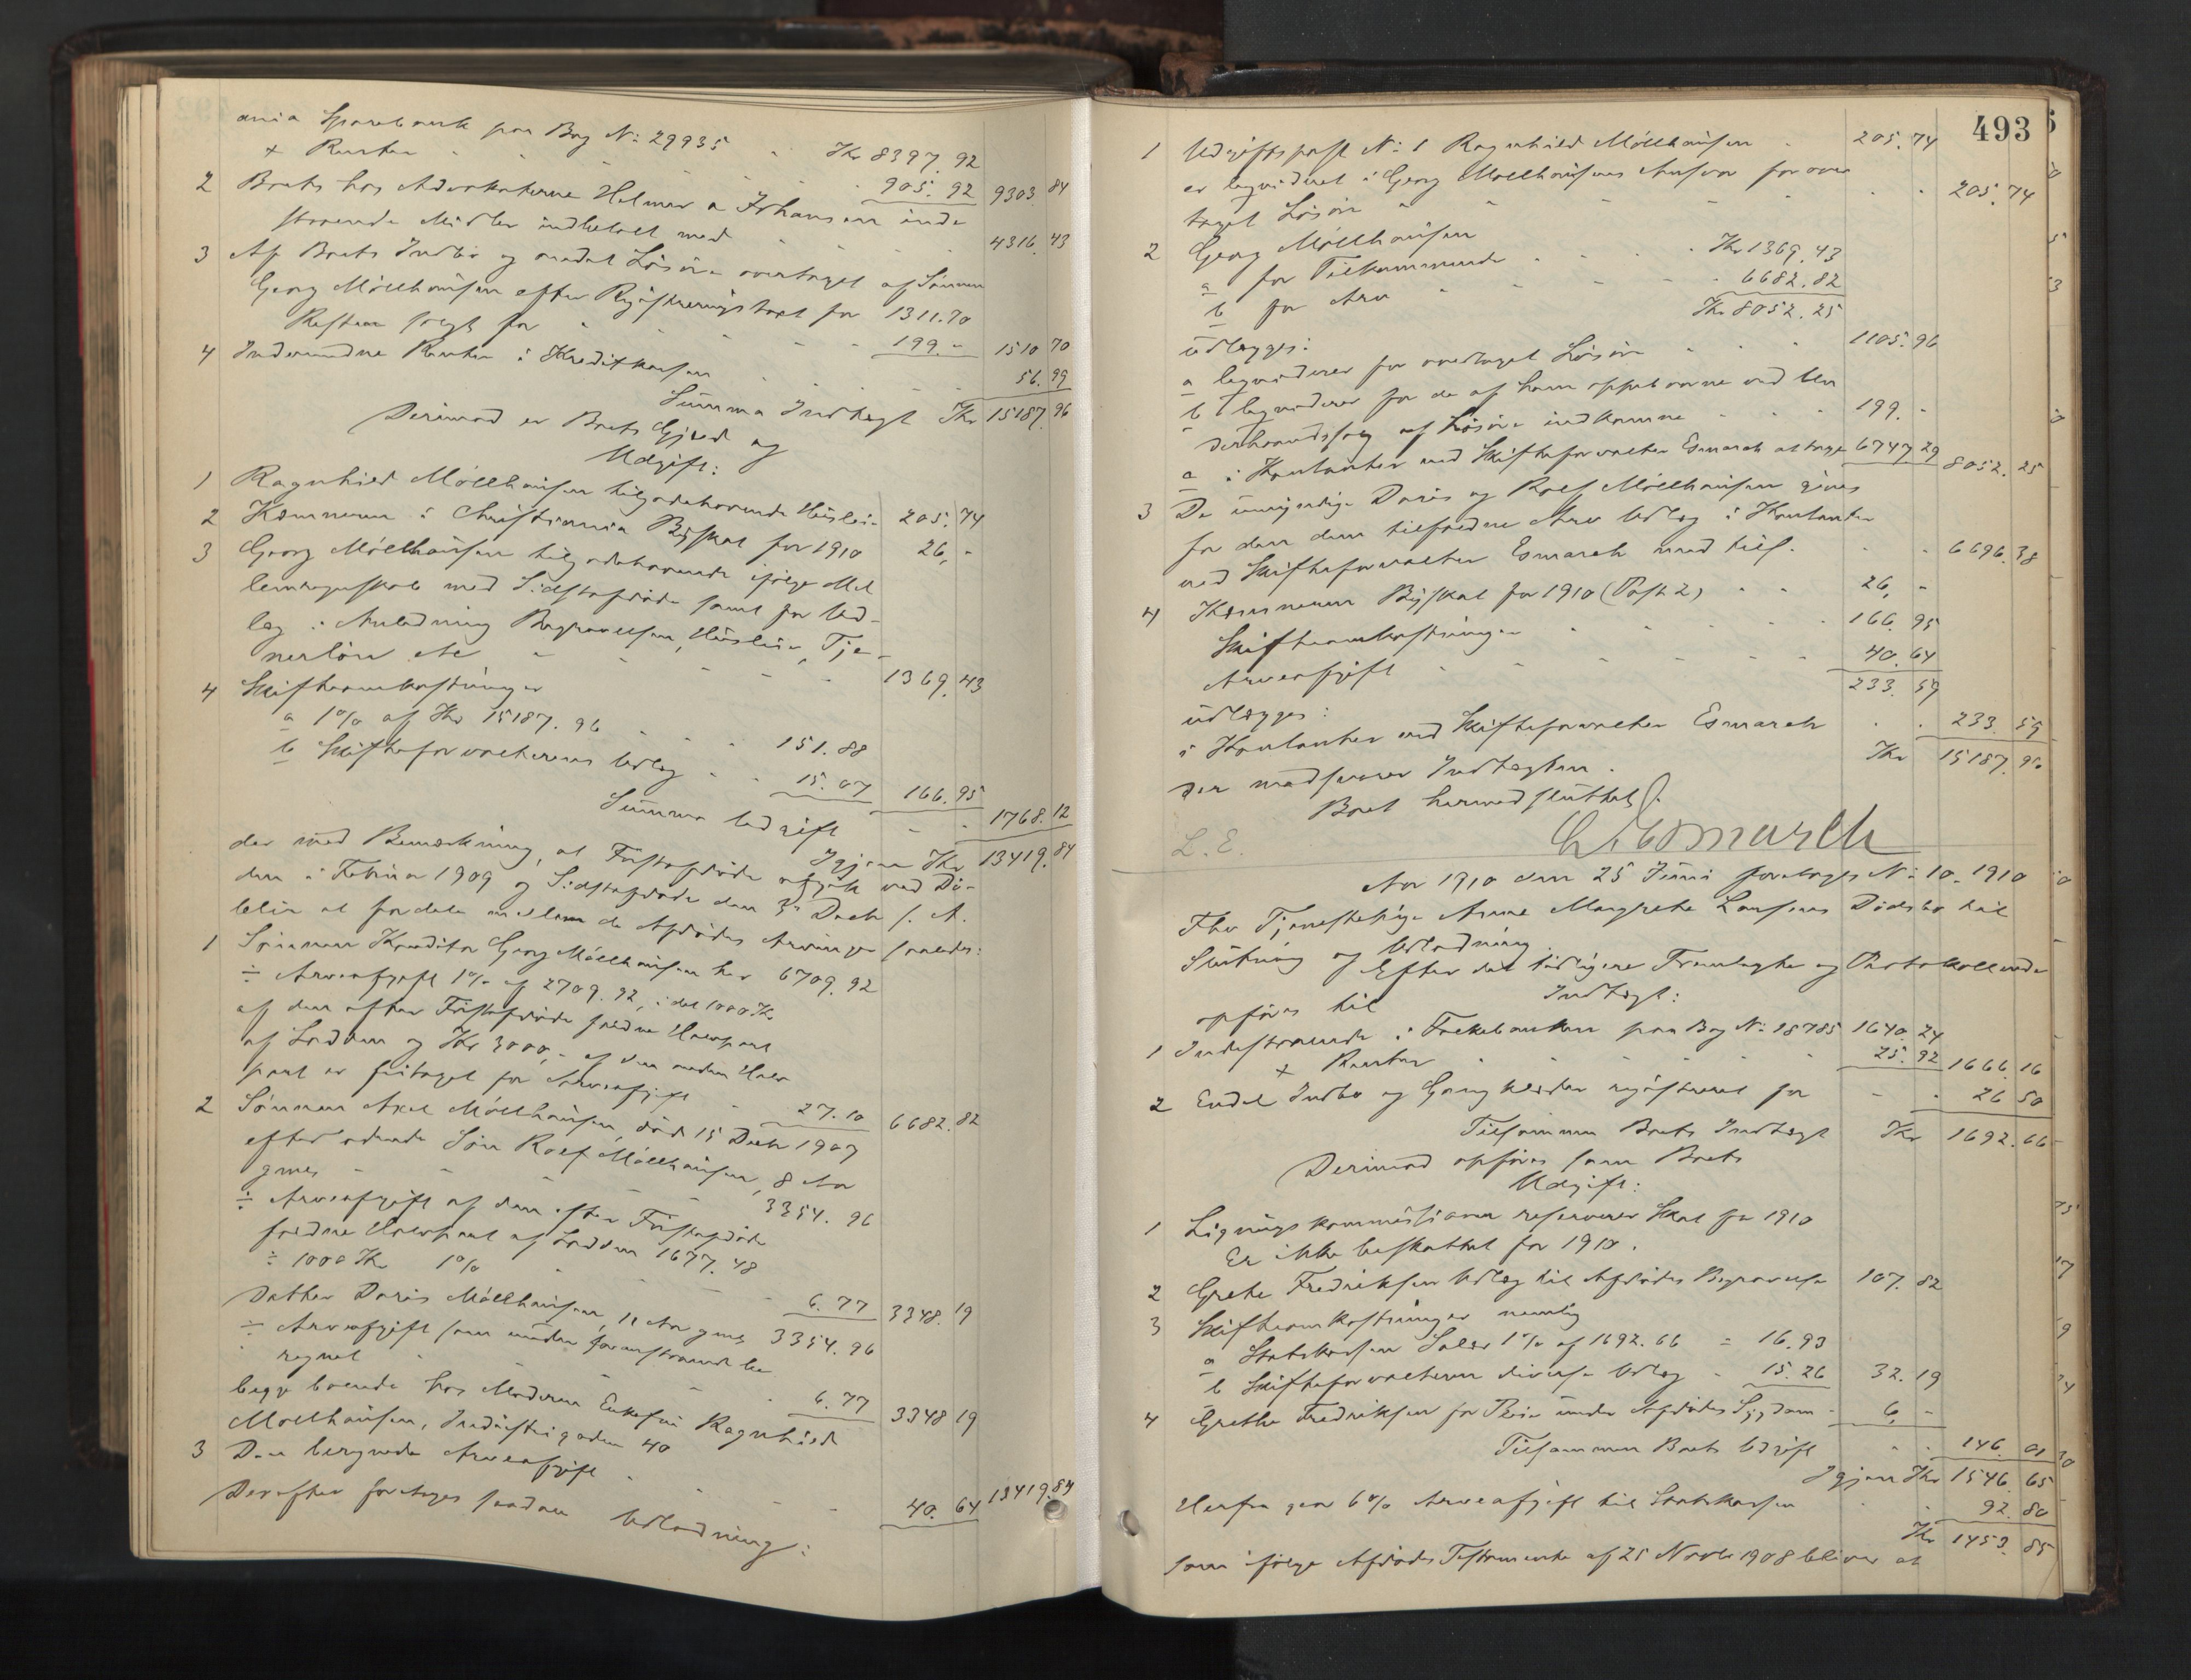 ania Sparebank paa Bog No 29935 Kr 8397.92
+ Renter 905.92 9303.84
2 Boets hos Advokaterne Helmer & Johansen inde
staaende Midler indbetalt med 4316.43
3 Af Boets Indbo og andet Løsøre overtaget af Sønnen
Georg Möllhausen efter Registreringstaxt for 1311.70
Resten solgt for 199.- 1510.70
4 Indvundne Renter i Kreditkassen 56.99
Summa Indtægt Kr 15187.96
Derimod er Boets Gjæld og
Udgift:
1 Ragnhild Möllhausen tilgodehavende Husleie 205.74
2 Kemneren i Christiania Byskat for 1910 26,-
3 Georg Möllhausen tilgodehavende ifølge Mel
lemregnskab med Sidstafdøde samt for Ud-
læg i Anledning Begravelsen, Husleie, Tje-
nerløn etc 1369.43
4 Skifteomkostninger
a 1% af Kr 15187.96 151.88
b Skifteforvalterens Udlæg 15.07 166.95
Summa Udgift 1768.12
Igjen Kr 13419.84
der med Bemærkning, at Førstafdøde afgik ved Dø-
den i Februar 1909 og Sidstafdøde den 3die Decb s. A.
bliver at fordele mellem de Afdødes Arvinger saaledes:
1 Sønnen Konditor Georg Möllhausen har 6709.92
÷ Arveafgift 1% af 2709.92, idet 1000 Kr
af den efter Førstafdøde faldne Halvpart
af Lodden og Kr 3000,- af den anden Halv
part er fritaget for Arveafgift 27.10 6682.82
2 Sønnen Axel Möllhausen, død 15 Decb 1907
efterladende Søn Rolf Möllhausen, 8 Aar
gml 3354.96
÷ Arveafgift af den efter Førstafdøde
faldne Halvpart af Lodden 1677.48
÷ 1000 Kr 1% 6.77 3348.19
Datter Doris Möllhausen, 11 Aar gml 3354.96
÷ Arveafgift som under foranstaaende be
regnet 6.77 3348.19
begge boende hos Moderen Enkefru Ragnhild
Möllhausen, Industrigaden 40
3 Den beregnede Arveafgift 40.64 13419.84
Derefter foretoges saadan Udlodning:
493
1 Udgiftspost No 1 Ragnhild Möllhausen 205.74
er likvideret i Georg Möllhausens Ansvar for over
taget Løsøre 205.74
2 Georg Möllhausen
a for Tilkommende Kr 1369.43
b for Arv 6682.82
Kr 8052.25
udlægges:
a likviderer for overtaget Løsøre 1105.96
b likviderer for de af ham oppebaarne ved Un
derhaandssalg af Løsøre indkomne 199.-
c i Kontanter ved Skifteforvalter Esmarch at tage 6747.29 8052.25
3 De umyndige Doris og Rolf Möllhausen gives
for den dem tilfaldne Arv Udlæg i Kontanter
ved Skifteforvalter Esmarch med tils. 6696.38
4 Kemneren Byskat for 1910 (Post 2) 26,-
Skifteomkostninger 166.95
Arveafgift 40.64
233.59
udlægges:
i Kontanter ved Skifteforvalter Esmarch 233.59
der modsvarer Indtægten. Kr 15187.96
Boet hermed sluttet.
Esmarch
L. E.
Aar 1910 den 25 Juni foretoges No 10-1910
Fhv Tjenestepige Anne Margrethe Larsens Dødsbo til
Slutning og Udlodning.
Efter det tidligere Fremlagte og Protokollerede
opføres til Indtægt:
1 Indestaaende i Folkebanken paa Bog No 18785 1640.24
+ Renter 25.92 1666.16
2 Endel Indbo og Gangklæder registreret for 26.50
Tilsammen Boets Indtægt Kr 1692.66
Derimod opføres som Boets
Udgift:
1 Ligningskommissionen reserverer Skat for 1910
Er ikke beskattet for 1910.
2 Grethe Fredriksen Udlæg til Afdødes Begravelse 107.82
3 Skifteomkostninger nemlig
a Statskassen Salær 1% af 1692.66 = 16.93
b Skifteforvalteren diverse Udlæg 15.26 32.19
4 Grethe Fredriksen for Pleie under Afdødes Sygdom 6,-
Tilsammen Boets Udgift 146.01
Igjen Kr 1546.65
Herfra gaar 6% Arveafgift til Statskassen 92.80
Kr 1453.85
som ifølge Afdødes Testamente af 25 Novbr 1908 bliver at